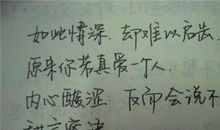 如此情深，却难以启齿．
原来你若真爱一个人．
内心酸涩．反而会说不
甜言蜜语